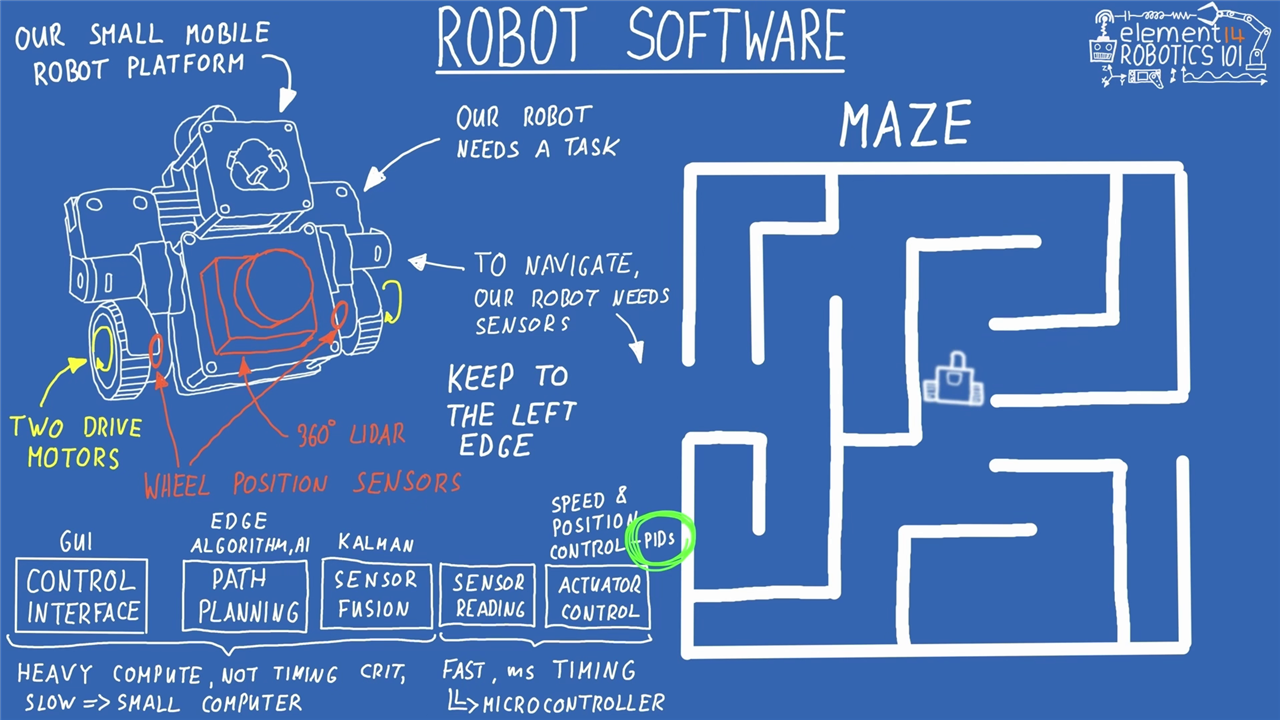 ROBOT SOFTWARE
element14
ROBOTICS 101
OUR SMALL MOBILE
ROBOT PLATFORM
OUR ROBOT
NEEDS A TASK
TO NAVIGATE,
OUR ROBOT NEEDS
SENSORS
KEEP TO
THE LEFT
EDGE
TWO DRIVE
MOTORS
360° LIDAR
WHEEL POSITION SENSORS
MAZE
GUI
CONTROL
INTERFACE
EDGE
ALGORITHM, AI
PATH
PLANNING
KALMAN
SENSOR
FUSION
SENSOR
READING
SPEED &
POSITION
CONTROL - PIDs
ACTUATOR
CONTROL
HEAVY COMPUTE, NOT TIMING CRIT,
SLOW => SMALL COMPUTER
FAST, ms TIMING
MICROCONTROLLER